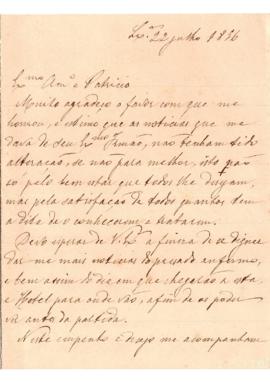 Lx.ª 22 julho 1896
Ex.mo Am.º e Patricio
Muito agradeço o favor com que me
honrou, e estimo que as noticias que me
dava de seu Ex.mo Irmão, não tenham tido
alteração, se não para melhor, isto não
só pelo bem estar que todos lhe desejam,
mas pela satisfação de todos quantos tem
a dita de o conhecerem e tratarem.
Devo esperar de V. Ex.ª a fineza de se dignar
dar me mais noticias do presado enfermo,
e bem assim do dia em que chegarão a esta
e Hotel para onde vão, afim de os poder
vêr antes da partida.
N'este empenho e desejo me acompanham